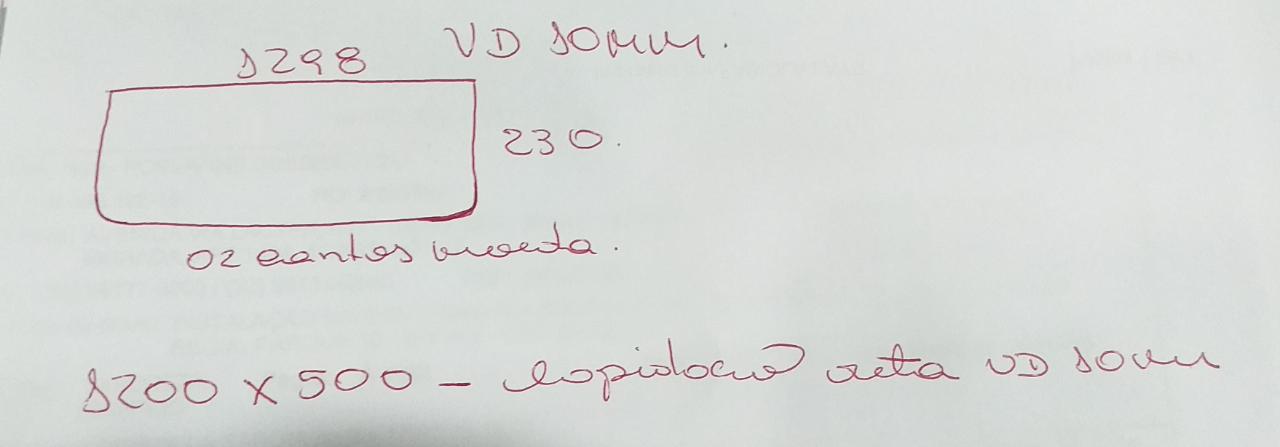 VD 10mm.
1298
230.
02 cantos moeda.
1200 x 500 - lapidação reta VD 10mm